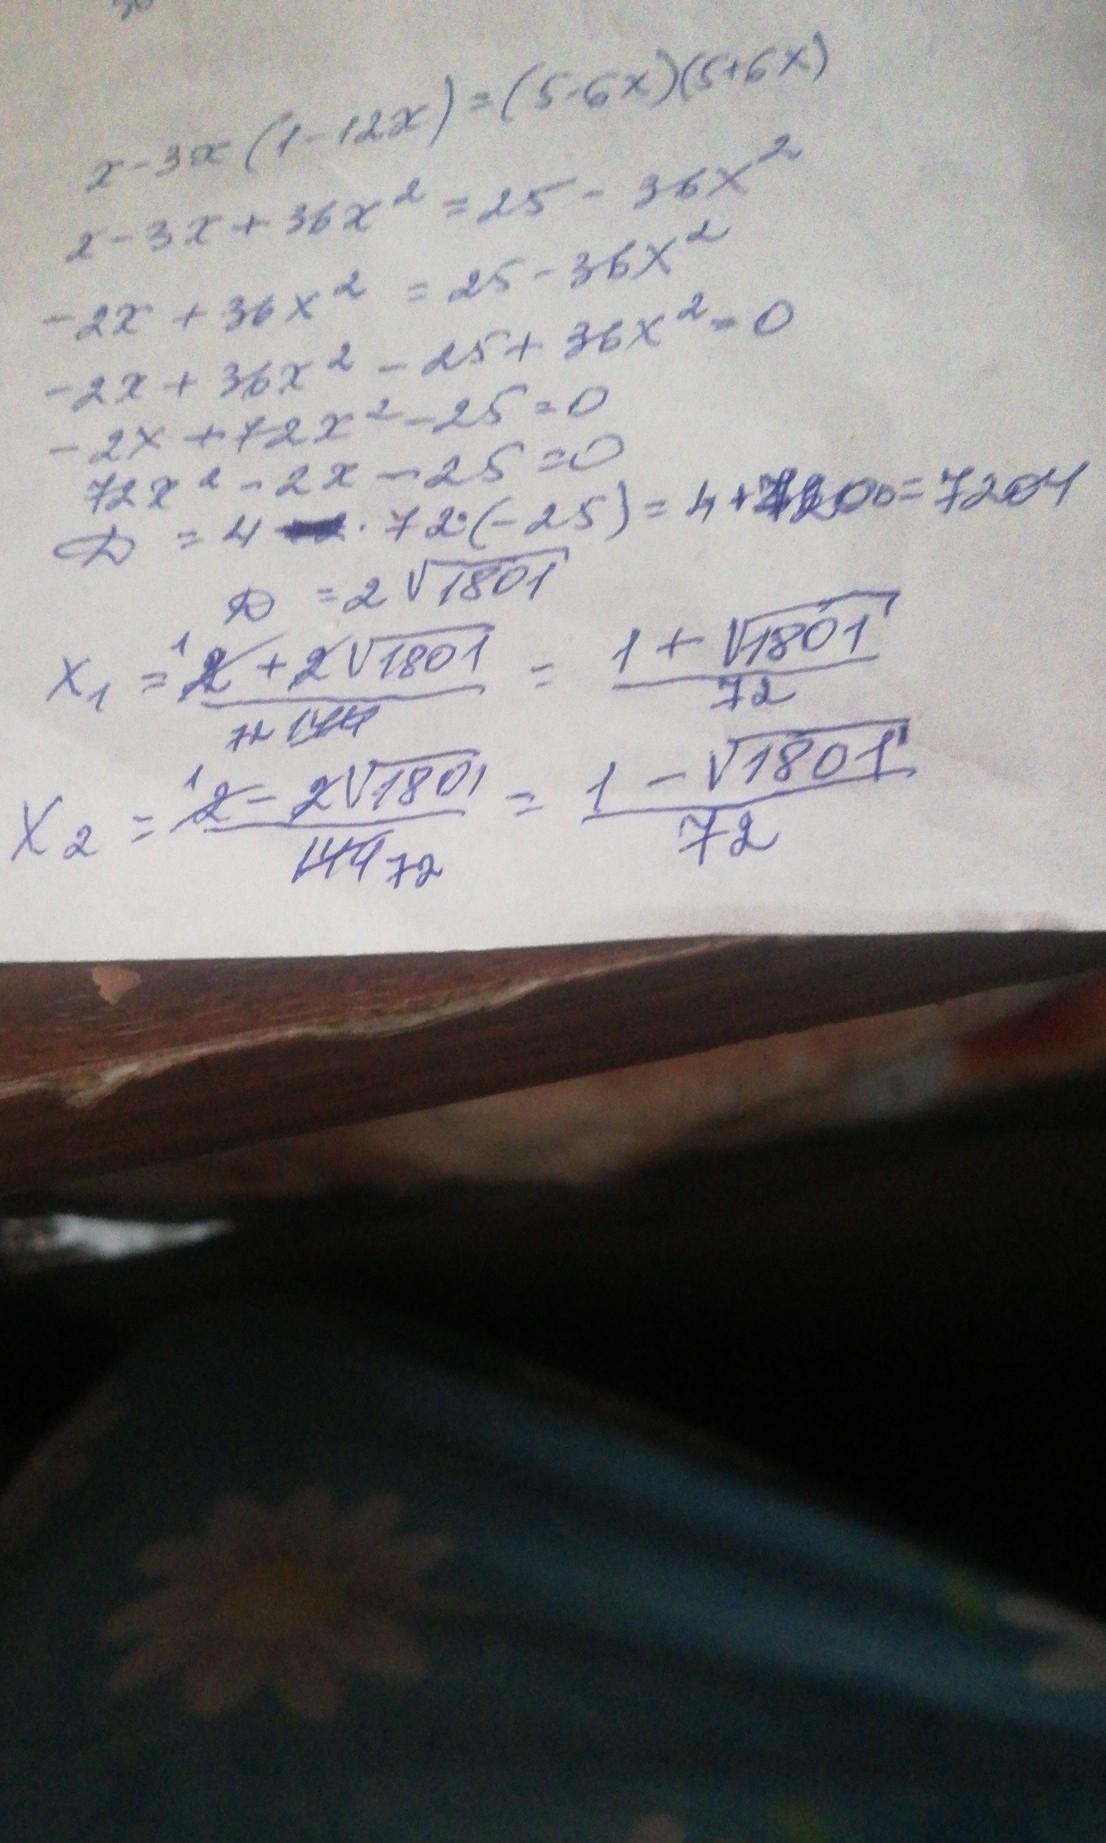 x-3x(1-12x)=(5-6x)(5+6x)
x-3x+36x²=25-36x²
-2x+36x²=25-36x²
-2x+36x²-25+36x²=0
-2x+72x²-25=0
72x²-2x-25=0
D=4·72·(-25)=4+7200=7204
D=2√1801
x₁=(2+2√1801)/144=(1+√1801)/72
x₂=(2-2√1801)/144=(1-√1801)/72